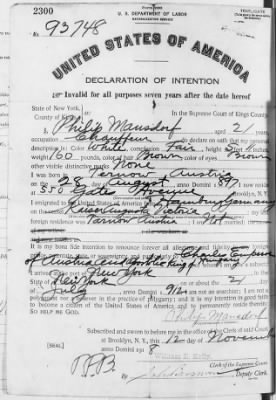 2300
U. S. DEPARTMENT OF LABOR
NATURALIZATION SERVICE
No. 93748
UNITED STATES OF AMERICA
DECLARATION OF INTENTION
Invalid for all purposes seven years after the date hereof
State of New York,
County of Kings, In the Supreme Court of Kings County
I, Philip Mansdorf, aged 21 years,
occupation Chauffeur, do declare on oath that my personal
description is: Color White, complexion Fair, height
160 pounds, color of hair Brown, color of eyes Brown
other visible distinctive marks None
I was born in Tarnow Austria
on the 28 day of August, anno Domini 1897; I now reside
at 350
I emigrated to the United States of America from Hamburg Germany
on the vessel Kaiserin Augusta Victoria
foreign residence was Tarnow Austria
It is my bona fide intention to renounce forever all allegiance and fidelity to any foreign
Charles Emperor
of Austria and Apostolic King of Hungary
New York
New York, on or about the 2 day
of July, anno Domini 1912; I am not an anarchist; I am not a
polygamist nor a believer in the practice of polygamy; and it is my intention in good faith
to become a citizen of the United States of America and to permanently reside therein:
SO HELP ME GOD.
Philip Mansdorf
Subscribed and sworn to before me in the office of the Clerk of said Court
at Brooklyn, N. Y., this 12 day of November
anno Domini 1918
[SEAL]
William E. Kelly
Clerk of the Supreme Court.
By Deputy Clerk.